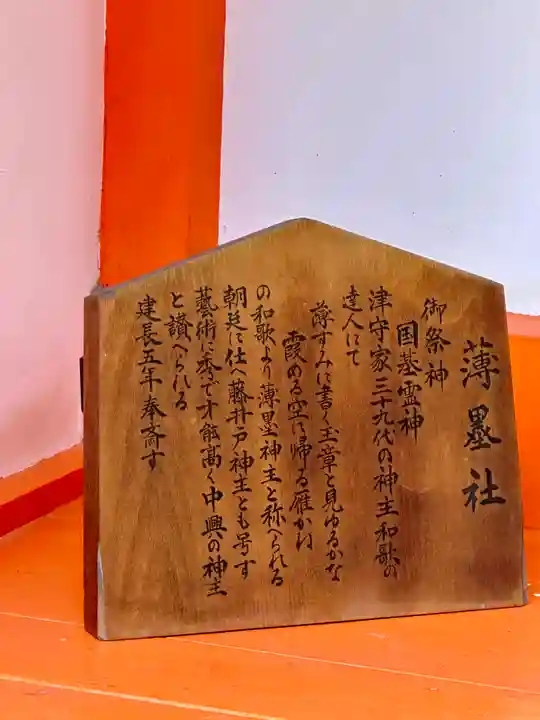 薄墨社
御祭神
国基霊神
津守家三十九代の神主和歌の
達人にて
薄すみに書く玉章と見ゆるかな
霞める空に帰る雁かね
の和歌より薄墨神主と称へられる
朝廷に仕へ藤井戸神主とも号す
藝術に秀で才能高く中興の神主
と讃へられる
建長五年奉斎す